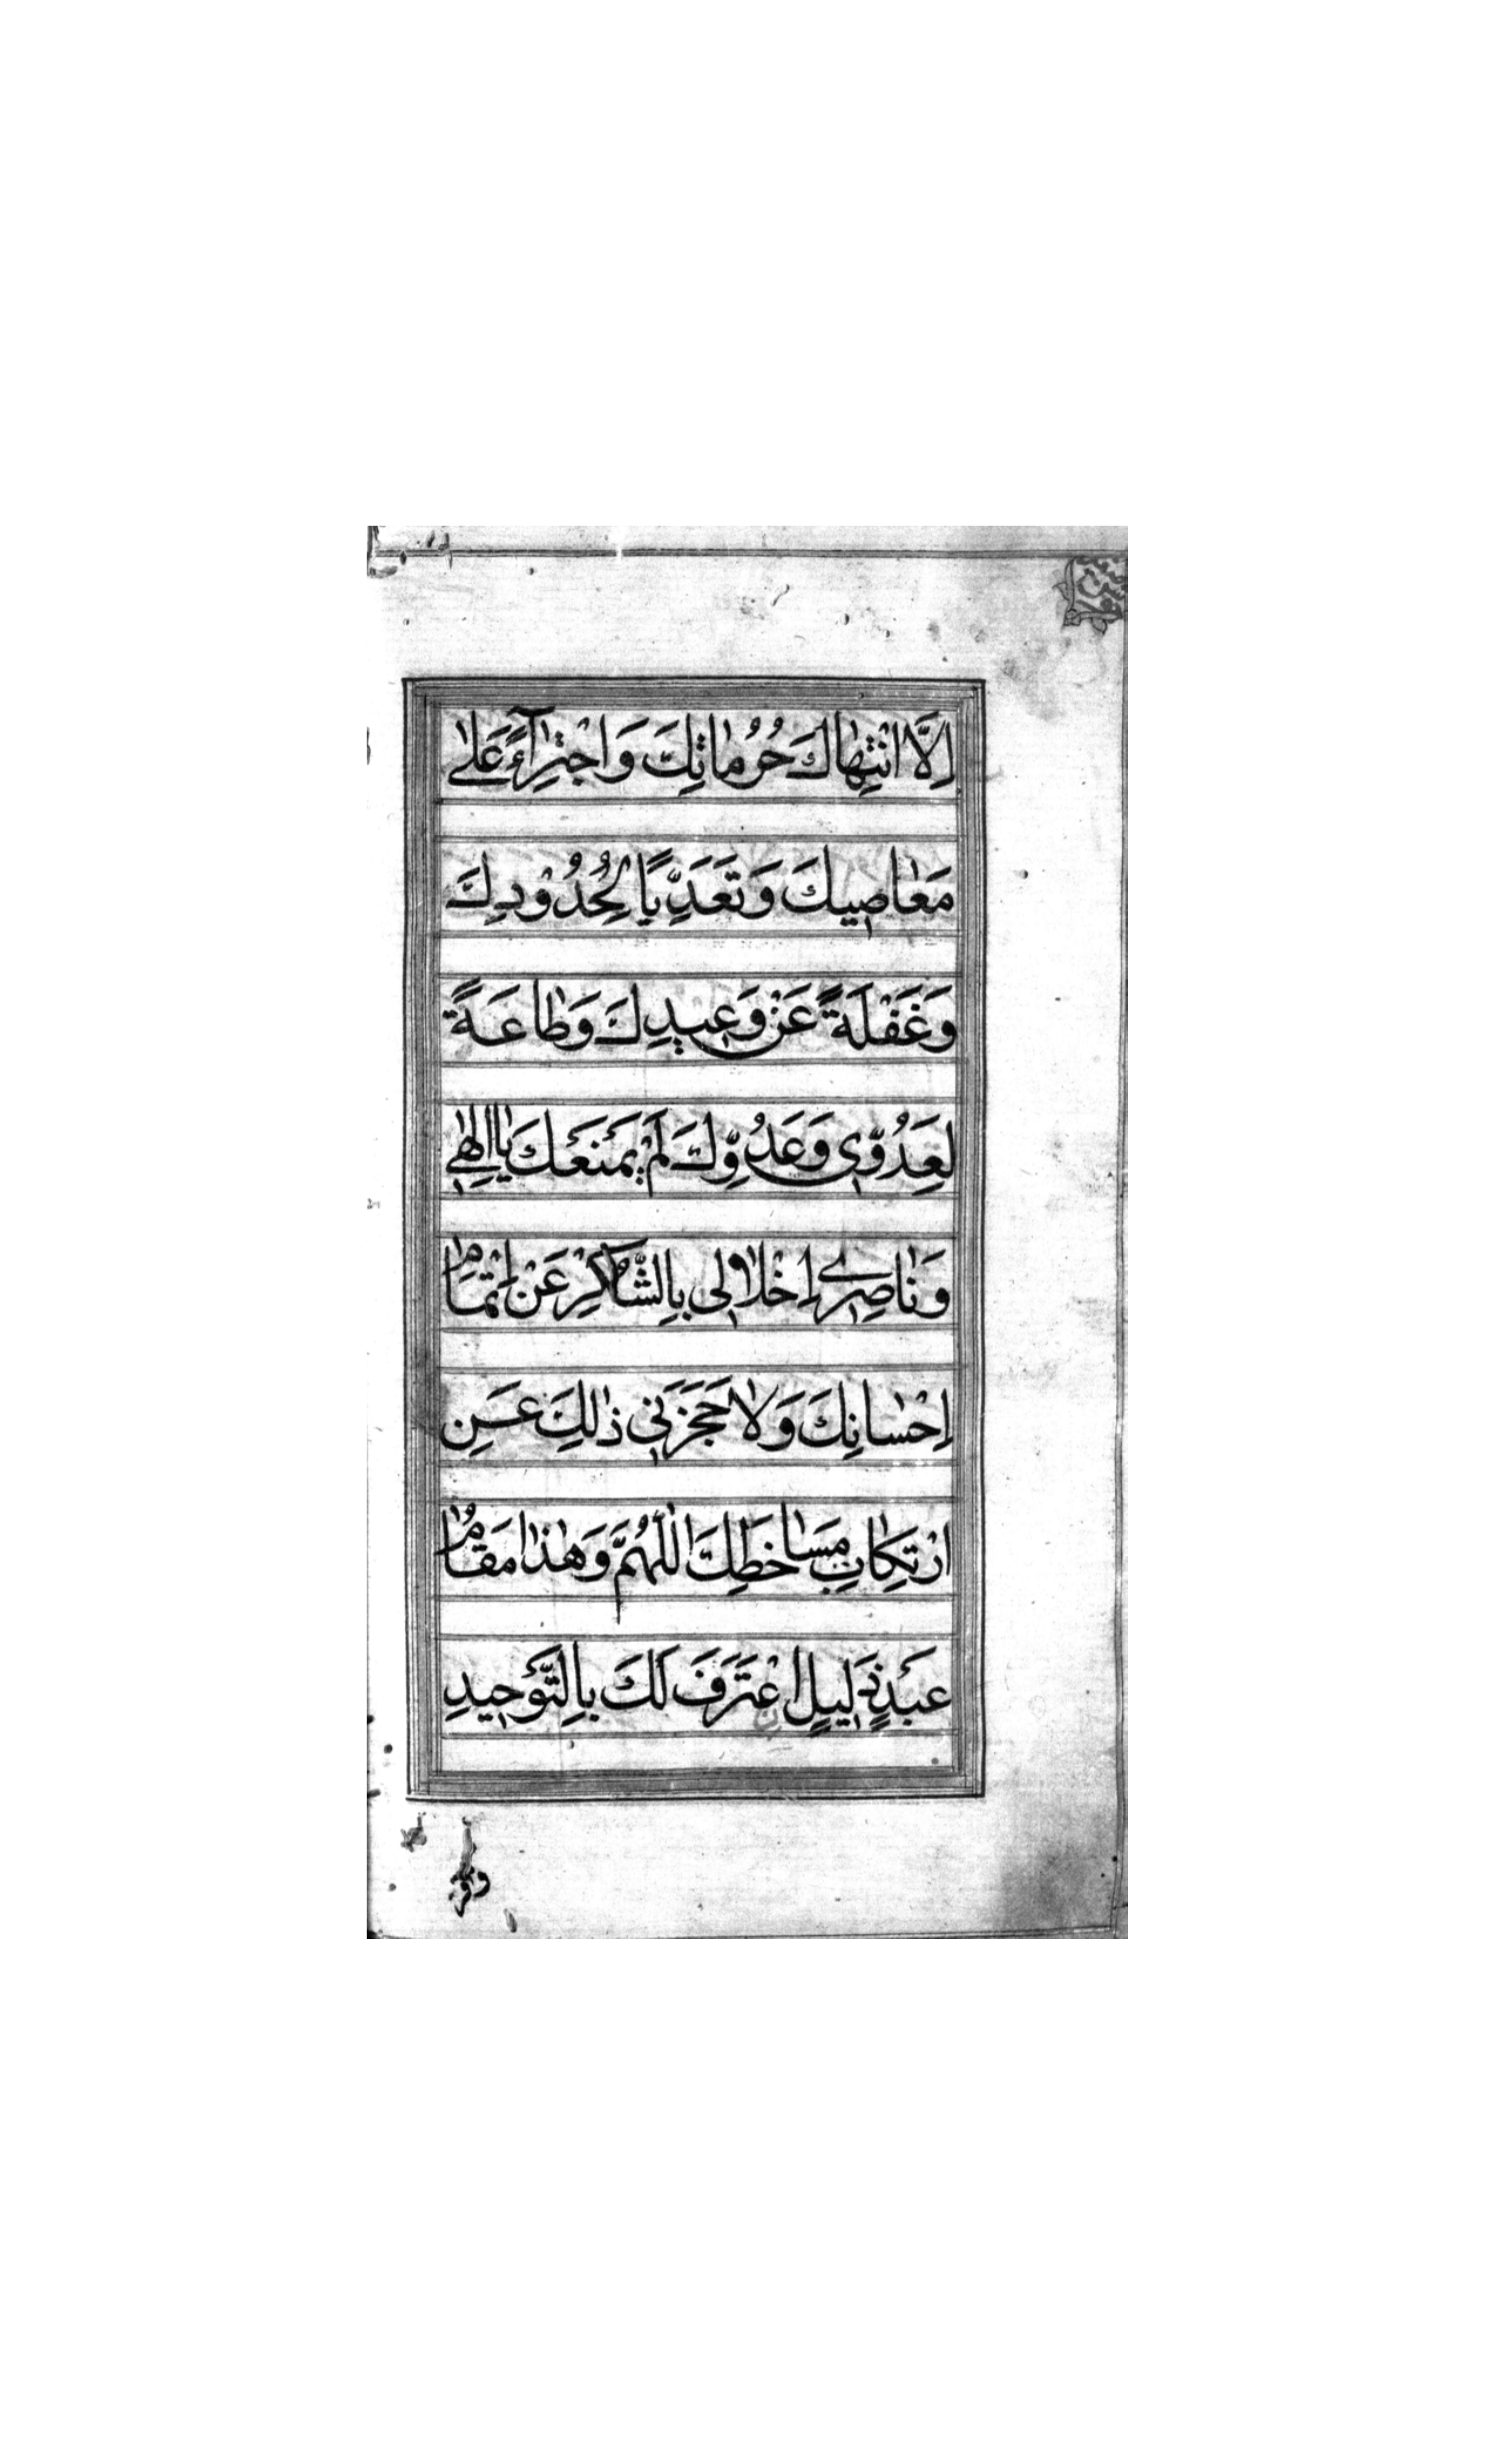 اِلَّا انْتِهاكَ حُرُماتِكَ وَاجْتِرٰآءً عَلٰى
مَعٰاصِيكَ وَتَعَدِّيًا لِحُدُوْدِكَ
وَغَفْلَةً عَنْ وَعِيدِكَ وَطٰاعَةً
لِعَدُوّٖى وَعَدُوِّكَ لَمْ يَمْنَعْكَ يٰا اِلٰهٖى
وَنٰاصِرٖى اِخْلٰالٖى بِالشُّكْرِ عَنْ اِتْمٰامِ
اِحْسٰانِكَ وَلٰا حَجَزَنٖى ذٰلِكَ عَنِ
ارْتِكٰابِ مَسٰاخِطِكَ اَللّٰهُمَّ وَهٰذٰا مَقٰامُ
عَبْدٍ ذَلٖيلٍ اعْتَرَفَ لَكَ بِالتَّوْحٖيدِ